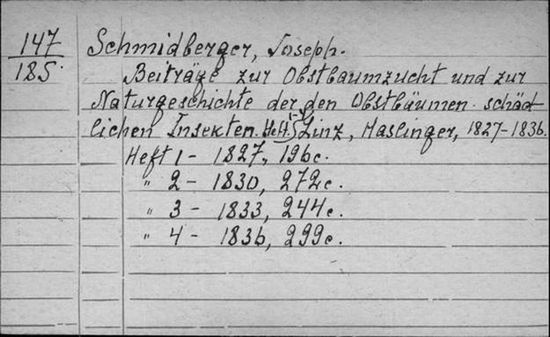 147
185
Schmidberger, Joseph.
Beiträge zur Obstbaumzucht und zur
Naturgeschichte der den Obstbäumen schäd
lichen Insekten. Linz, Haslinger, 1827-1836.
Heft 1 - 1827, 196c.
" 2 - 1830, 272c.
" 3 - 1833, 244c.
" 4 - 1836, 299c.